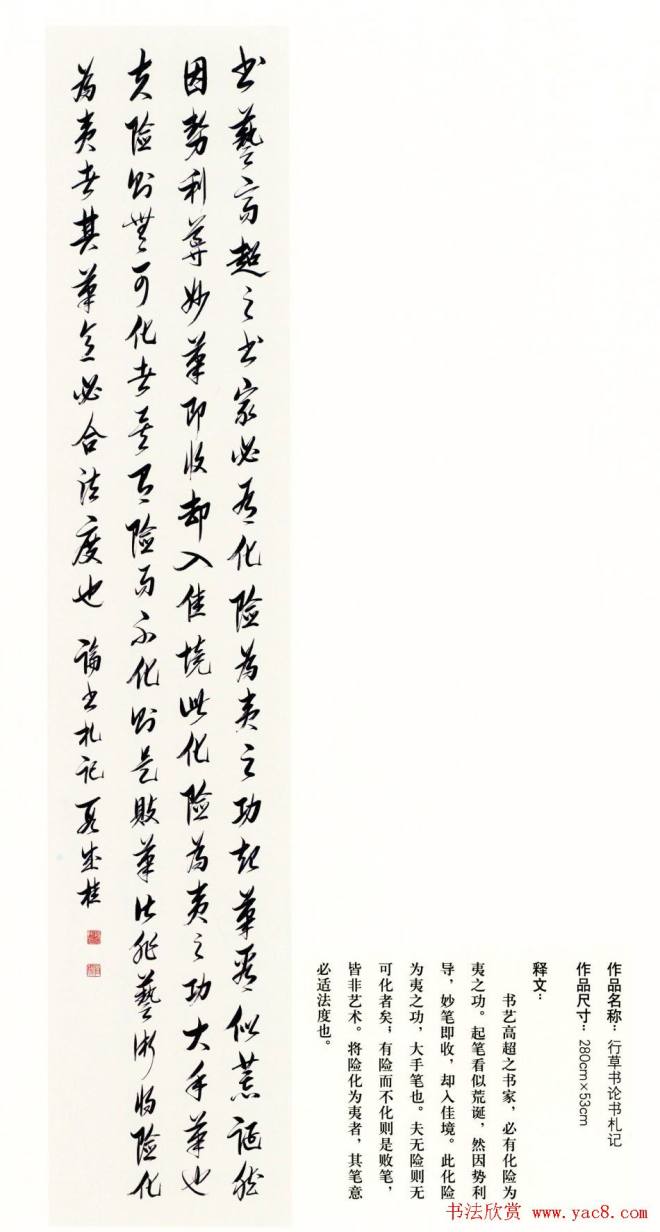 书藝高超之书家必有化险為夷之功起筆看似荒誕然
因勢利導妙筆即收却入佳境此化险為夷之功大手筆也
夫险则無可化者矣有险而不化则是敗筆皆非藝術将险化
為夷者其筆意必合法度也 論书札记
作品名称：行草书论书札记
作品尺寸：280cm×53cm
释文：
书艺高超之书家，必有化险为
夷之功。起笔看似荒诞，然因势利
导，妙笔即收，却入佳境。此化险
为夷之功，大手笔也。夫无险则无
可化者矣；有险而不化则是败笔，
皆非艺术。将险化为夷者，其笔意
必适法度也。
书法欣赏 www.yac8.com